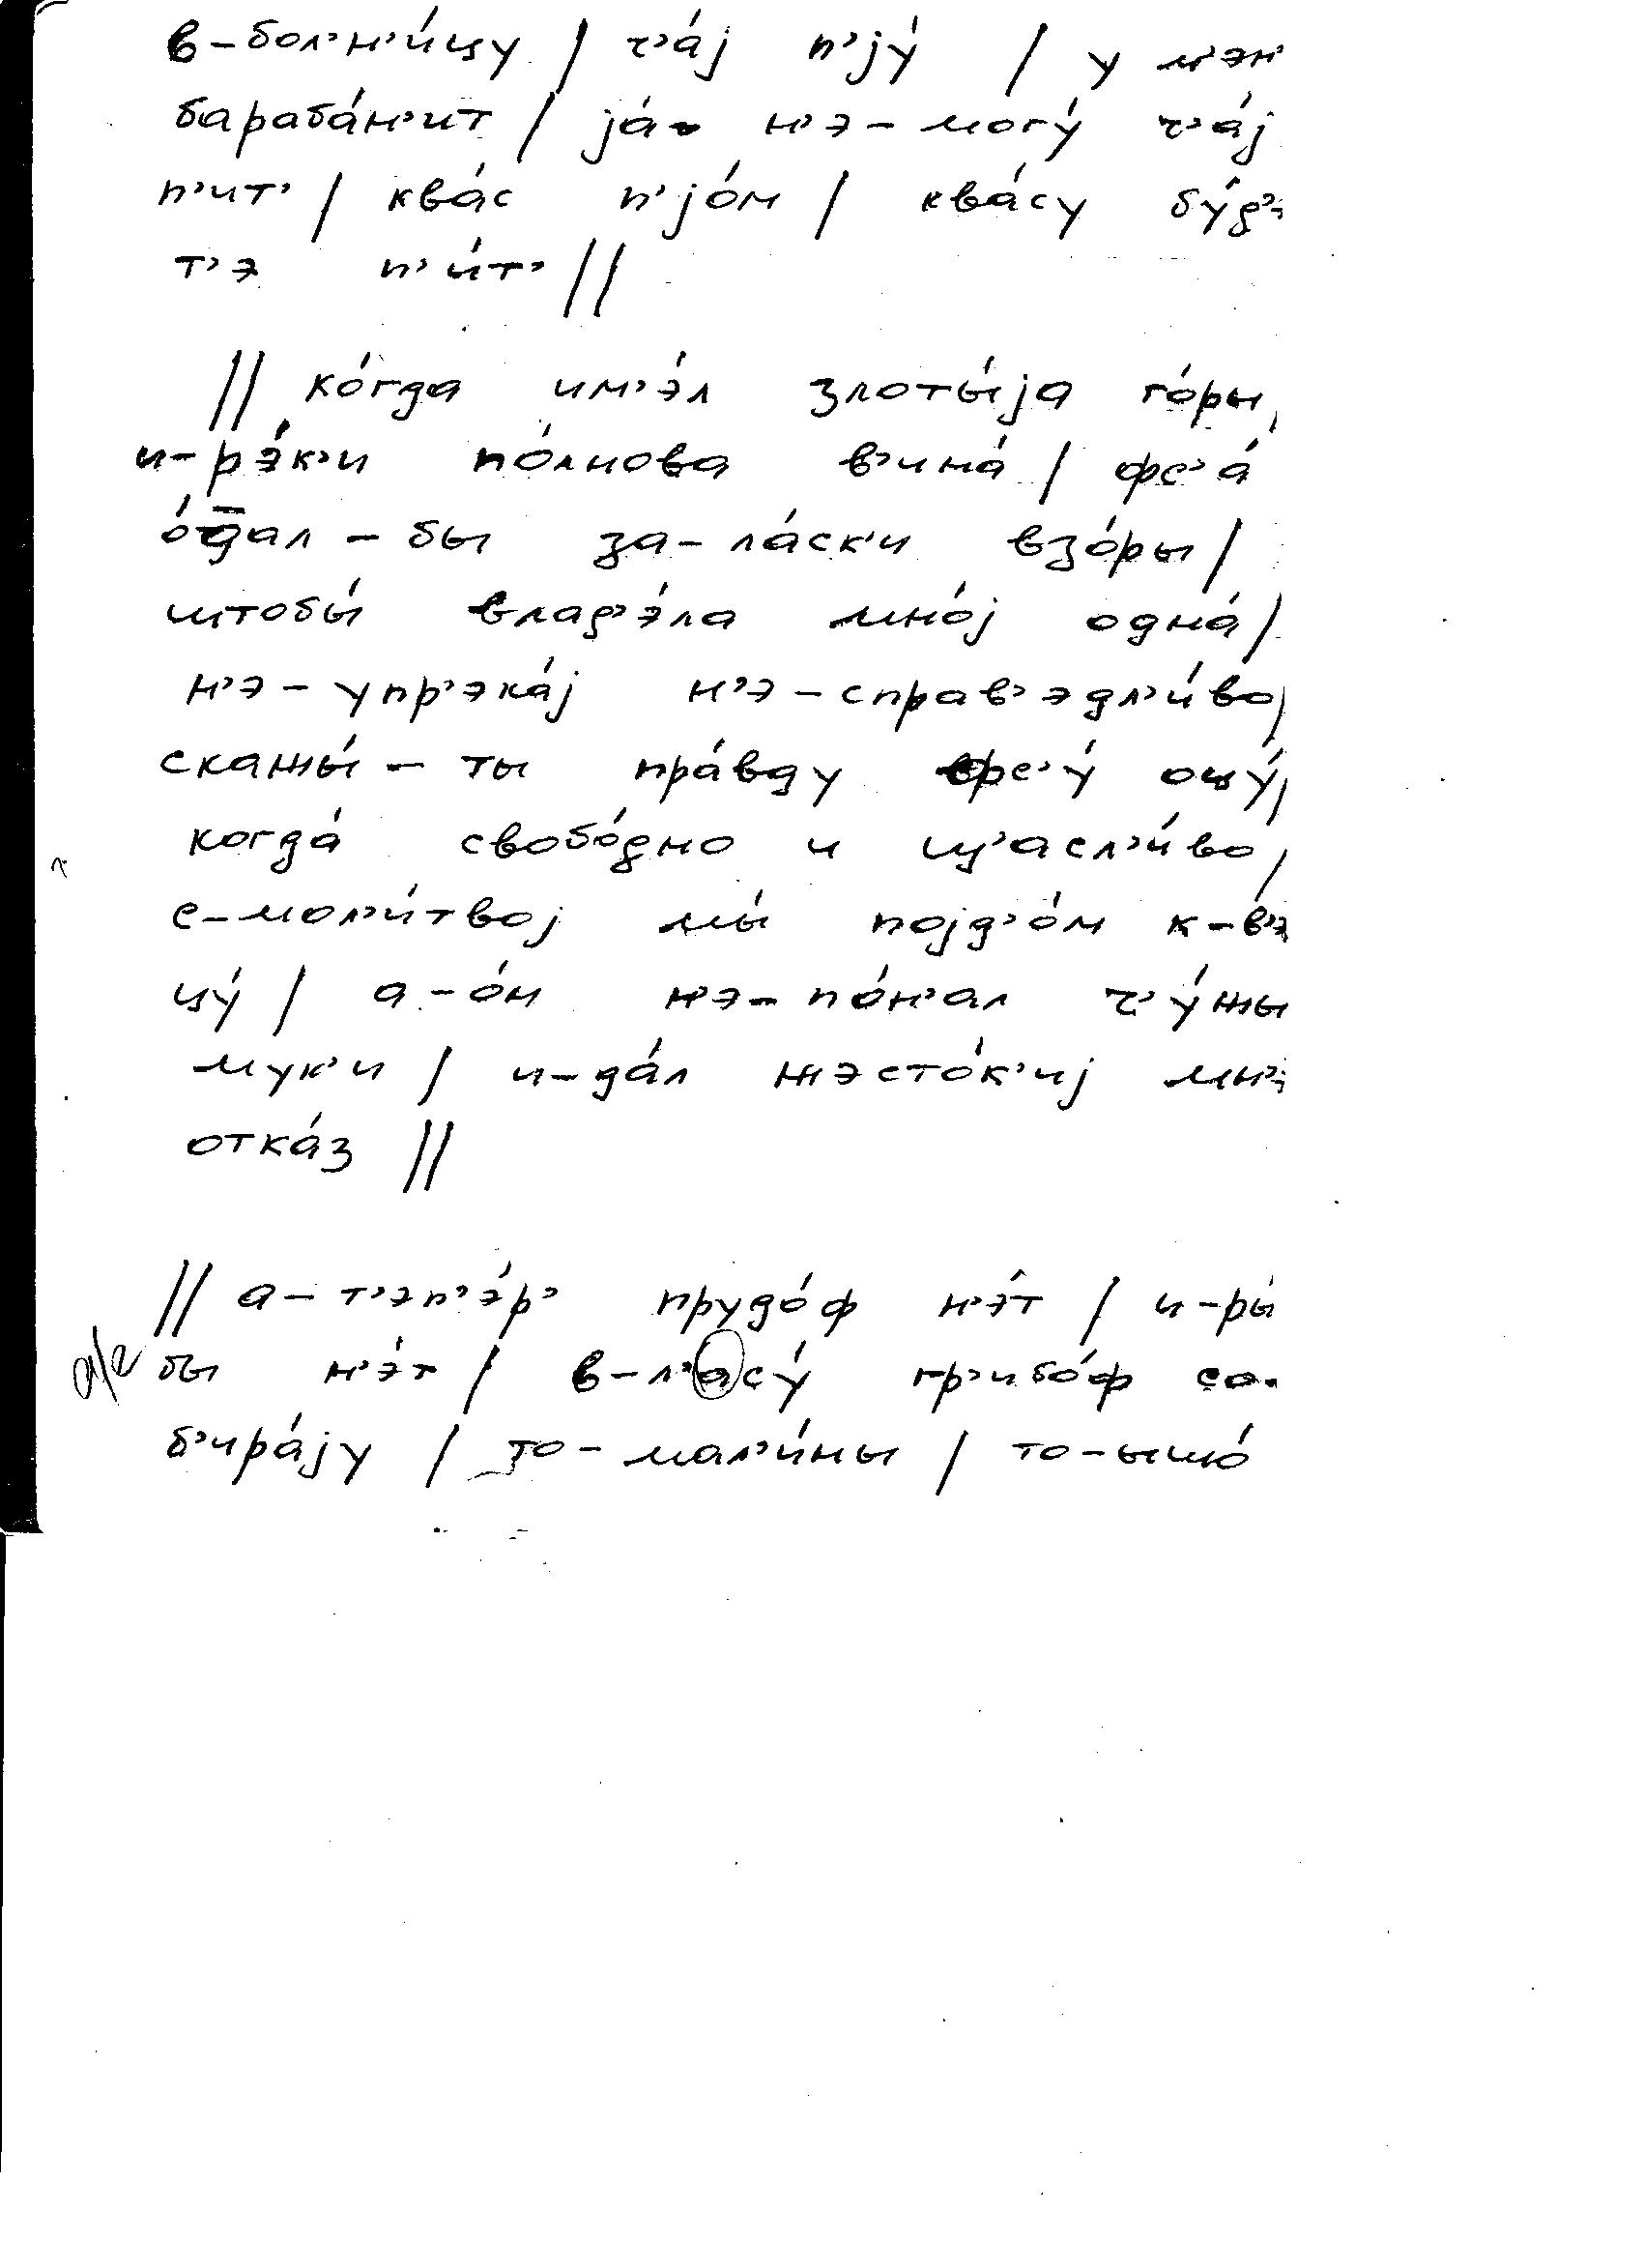 в-бол’н’и́цу / ч’а́j п’jу́ / у м’эн’
бараба́н’ит / jа́ н’э-могу́ ч’а́j
п’ит’ / ква́с п’jо́м / ква́су бу́д’
т’э п’и́т’ //
// ко́гда им’э́л злоты́jа го́ры,
и-рэ́к’и по́лнова в’ина́ / фс’а́
о́д̄ал-бы за-ла́ск’и взо́ры /
штобы́ влад’э́ла мно́j одна́ /
н’э-упр’эка́j н’э-справ’эдл’и́во,
скажы́-ты пра́вду фс’у́ оцу́,
когда́ свобо́дно и щ’асл’и́во,
с-мол’и́твоj мы́ поjд’о́м к-в’э
цу́ / а-о́н н’э-по́н’ал ч’у́жы
мук’и / и-да́л жэсто́к’иj мн’
отка́з //
// а-т’эп’э́р’ прудо́ф н’э́т / и-ры́
а/е бы н’э́т / в-л’асу́ гр’ибо́ф со-
б’ира́jу / то-мал’и́ны / то-ышо́